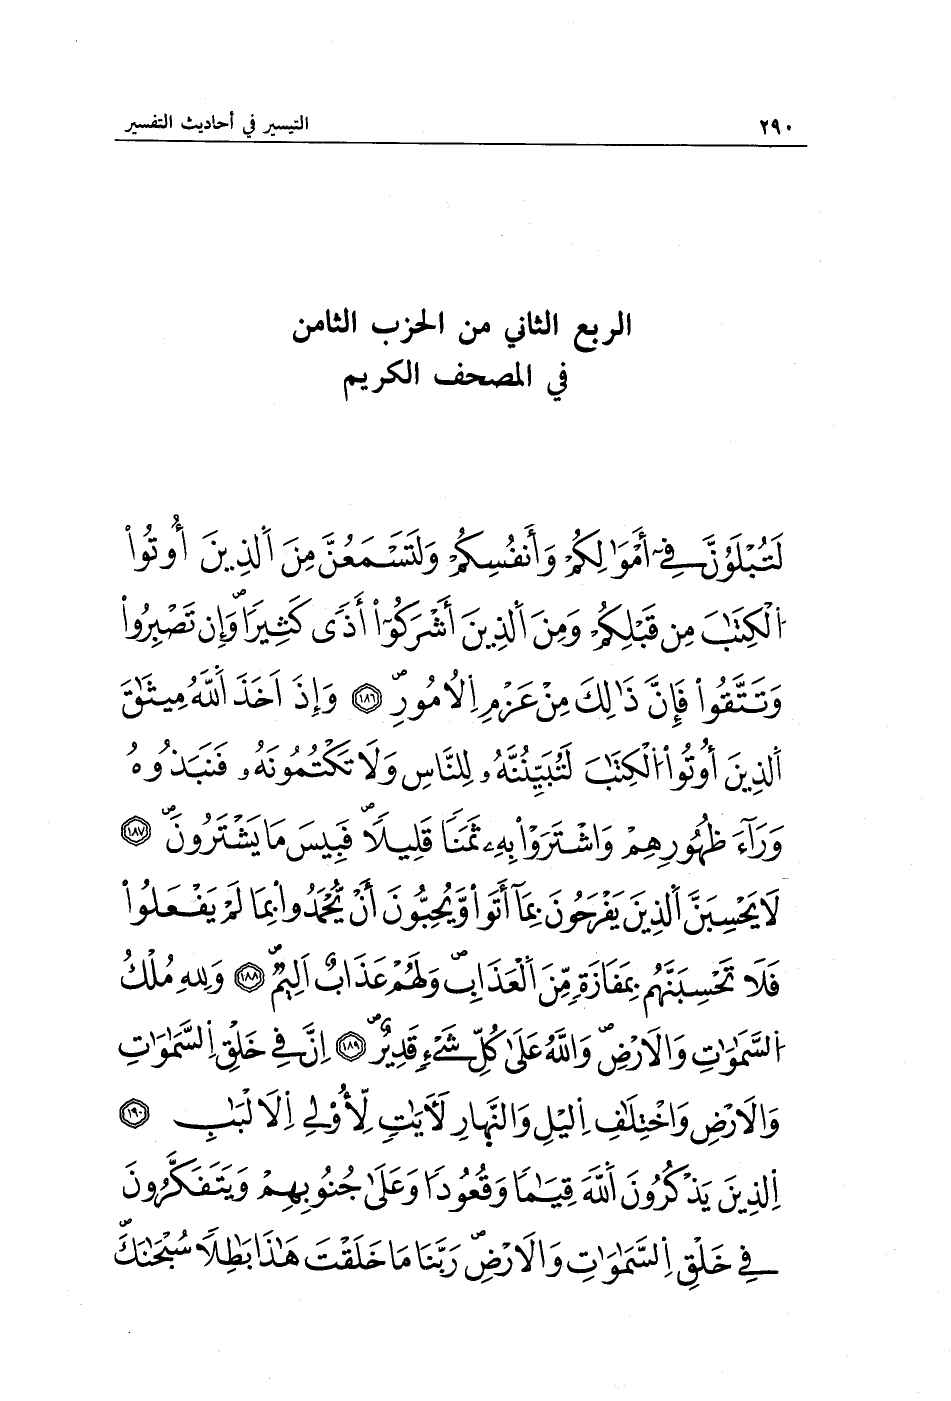 ٢٩٠ التيسير في أحاديث التفسير
الربع الثاني من الحزب الثامن
في المصحف الكريم
لَتُبْلَوُنَّ فِےٓ أَمْوَٰلِكُمْ وَأَنفُسِكُمْ وَلَتَسْمَعُنَّ مِنَ اَلذِينَ أُوتُواْ
اُلْكِتَٰبَ مِن قَبْلِكُمْ وَمِنَ اَلذِينَ أَشْرَكُوٓاْ أَذىً كَثِيراًۖ وَإِن تَصْبِرُواْ
وَتَتَّقُواْ فَإِنَّ ذَٰلِكَ مِنْ عَزْمِ اِلُامُورِۖ ١٨٦ وَإِذَ اَخَذَ اَللَّهُ مِيثَٰقَ
اَلذِينَ أُوتُواْ اُلْكِتَٰبَ لَتُبَيِّنُنَّهُۥ لِلنَّاسِ وَلَا تَكْتُمُونَهُۥ فَنَبَذُوهُ
وَرَآءَ ظُهُورِهِمْ وَاشْتَرَوْاْ بِهِۦ ثَمَناً قَلِيلاًۖ فَبِيسَ مَا يَشْتَرُونَۖ ١٨٧
لَا يَحْسِبَنَّ اَلذِينَ يَفْرَحُونَ بِمَآ أَتَواْ وَّيُحِبُّونَ أَنْ يُّحْمَدُواْ بِمَا لَمْ يَفْعَلُواْ
فَلَا تَحْسِبَنَّهُم بِمَفَازَةٍ مِّنَ اَلْعَذَابِۖ وَلَهُمْ عَذَابٌ اَلِيمٌۖ ١٨٨ وَلِلهِ مُلْكُ
اُلسَّمَٰوَٰتِ وَالَارْضِۖ وَاللَّهُ عَلَىٰ كُلِّ شَےْءٍ قَدِيرٌۖ ١٨٩ اِنَّ فِے خَلْقِ اِلسَّمَٰوَٰتِ
وَالَارْضِ وَاخْتِلَٰفِ اِليْلِ وَالنَّهارِ لَأٓيَٰتٍ لِّأُوْلِے اِلَالْبَٰبِ ١٩٠
اِلذِينَ يَذْكُرُونَ اَللَّهَ قِيَٰماً وَقُعُوداً وَعَلَىٰ جُنُوبِهِمْ وَيَتَفَكَّرُونَ
فِے خَلْقِ اِلسَّمَٰوَٰتِ وَالَارْضِۖ رَبَّنَا مَا خَلَقْتَ هَٰذَا بَٰطِلاًۖ سُبْحَٰنَكَۖ